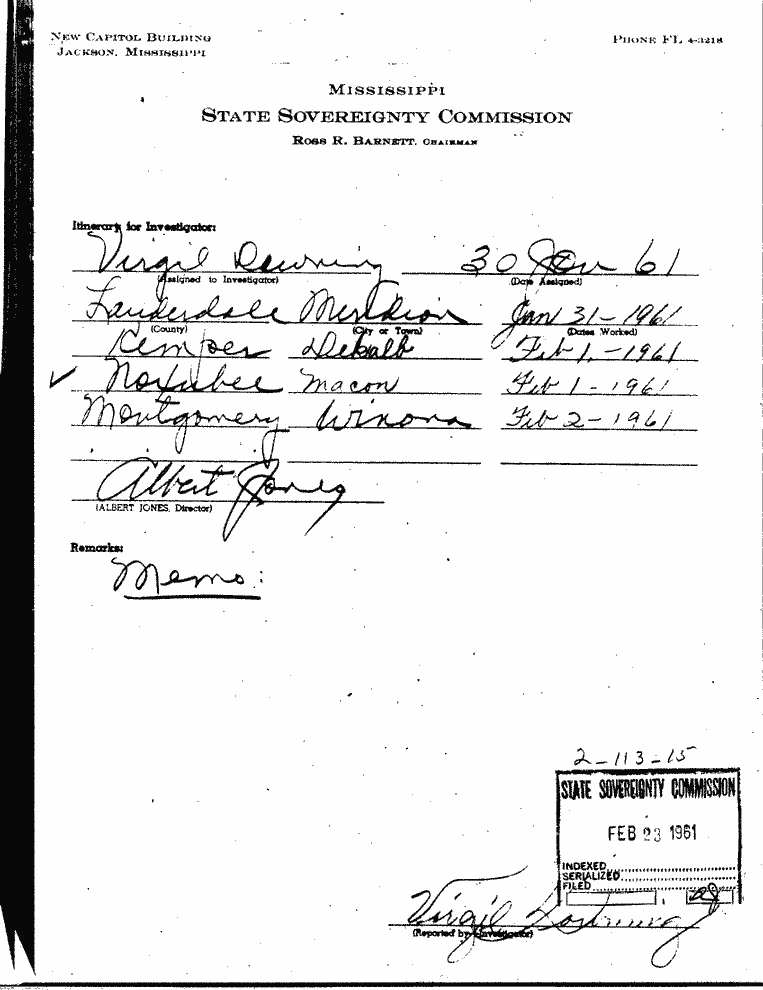 NEW CAPITOL BUILDING
JACKSON, MISSISSIPPI
PHONE FL 4-3218
MISSISSIPPI
STATE SOVEREIGNTY COMMISSION
ROSS R. BARNETT, CHAIRMAN
Itinerary for Investigator:
Virgil Downing 30 Jan 61
(Assigned to Investigator) (Date Assigned)
Lauderdale Meridian Jan 31-1961
(County) (City or Town) (Dates Worked)
Kemper Dekalb Feb 1.-1961
✓ Noxubee Macon Feb 1-1961
Montgomery Winona Feb 2-1961
Albert Jones
(ALBERT JONES, Director)
Remarks:
Memo:
2-113-15
STATE SOVEREIGNTY COMMISSION
FEB 23 1961
INDEXED
SERIALIZED
FILED
Virgil Downing
(Reported by Investigator)